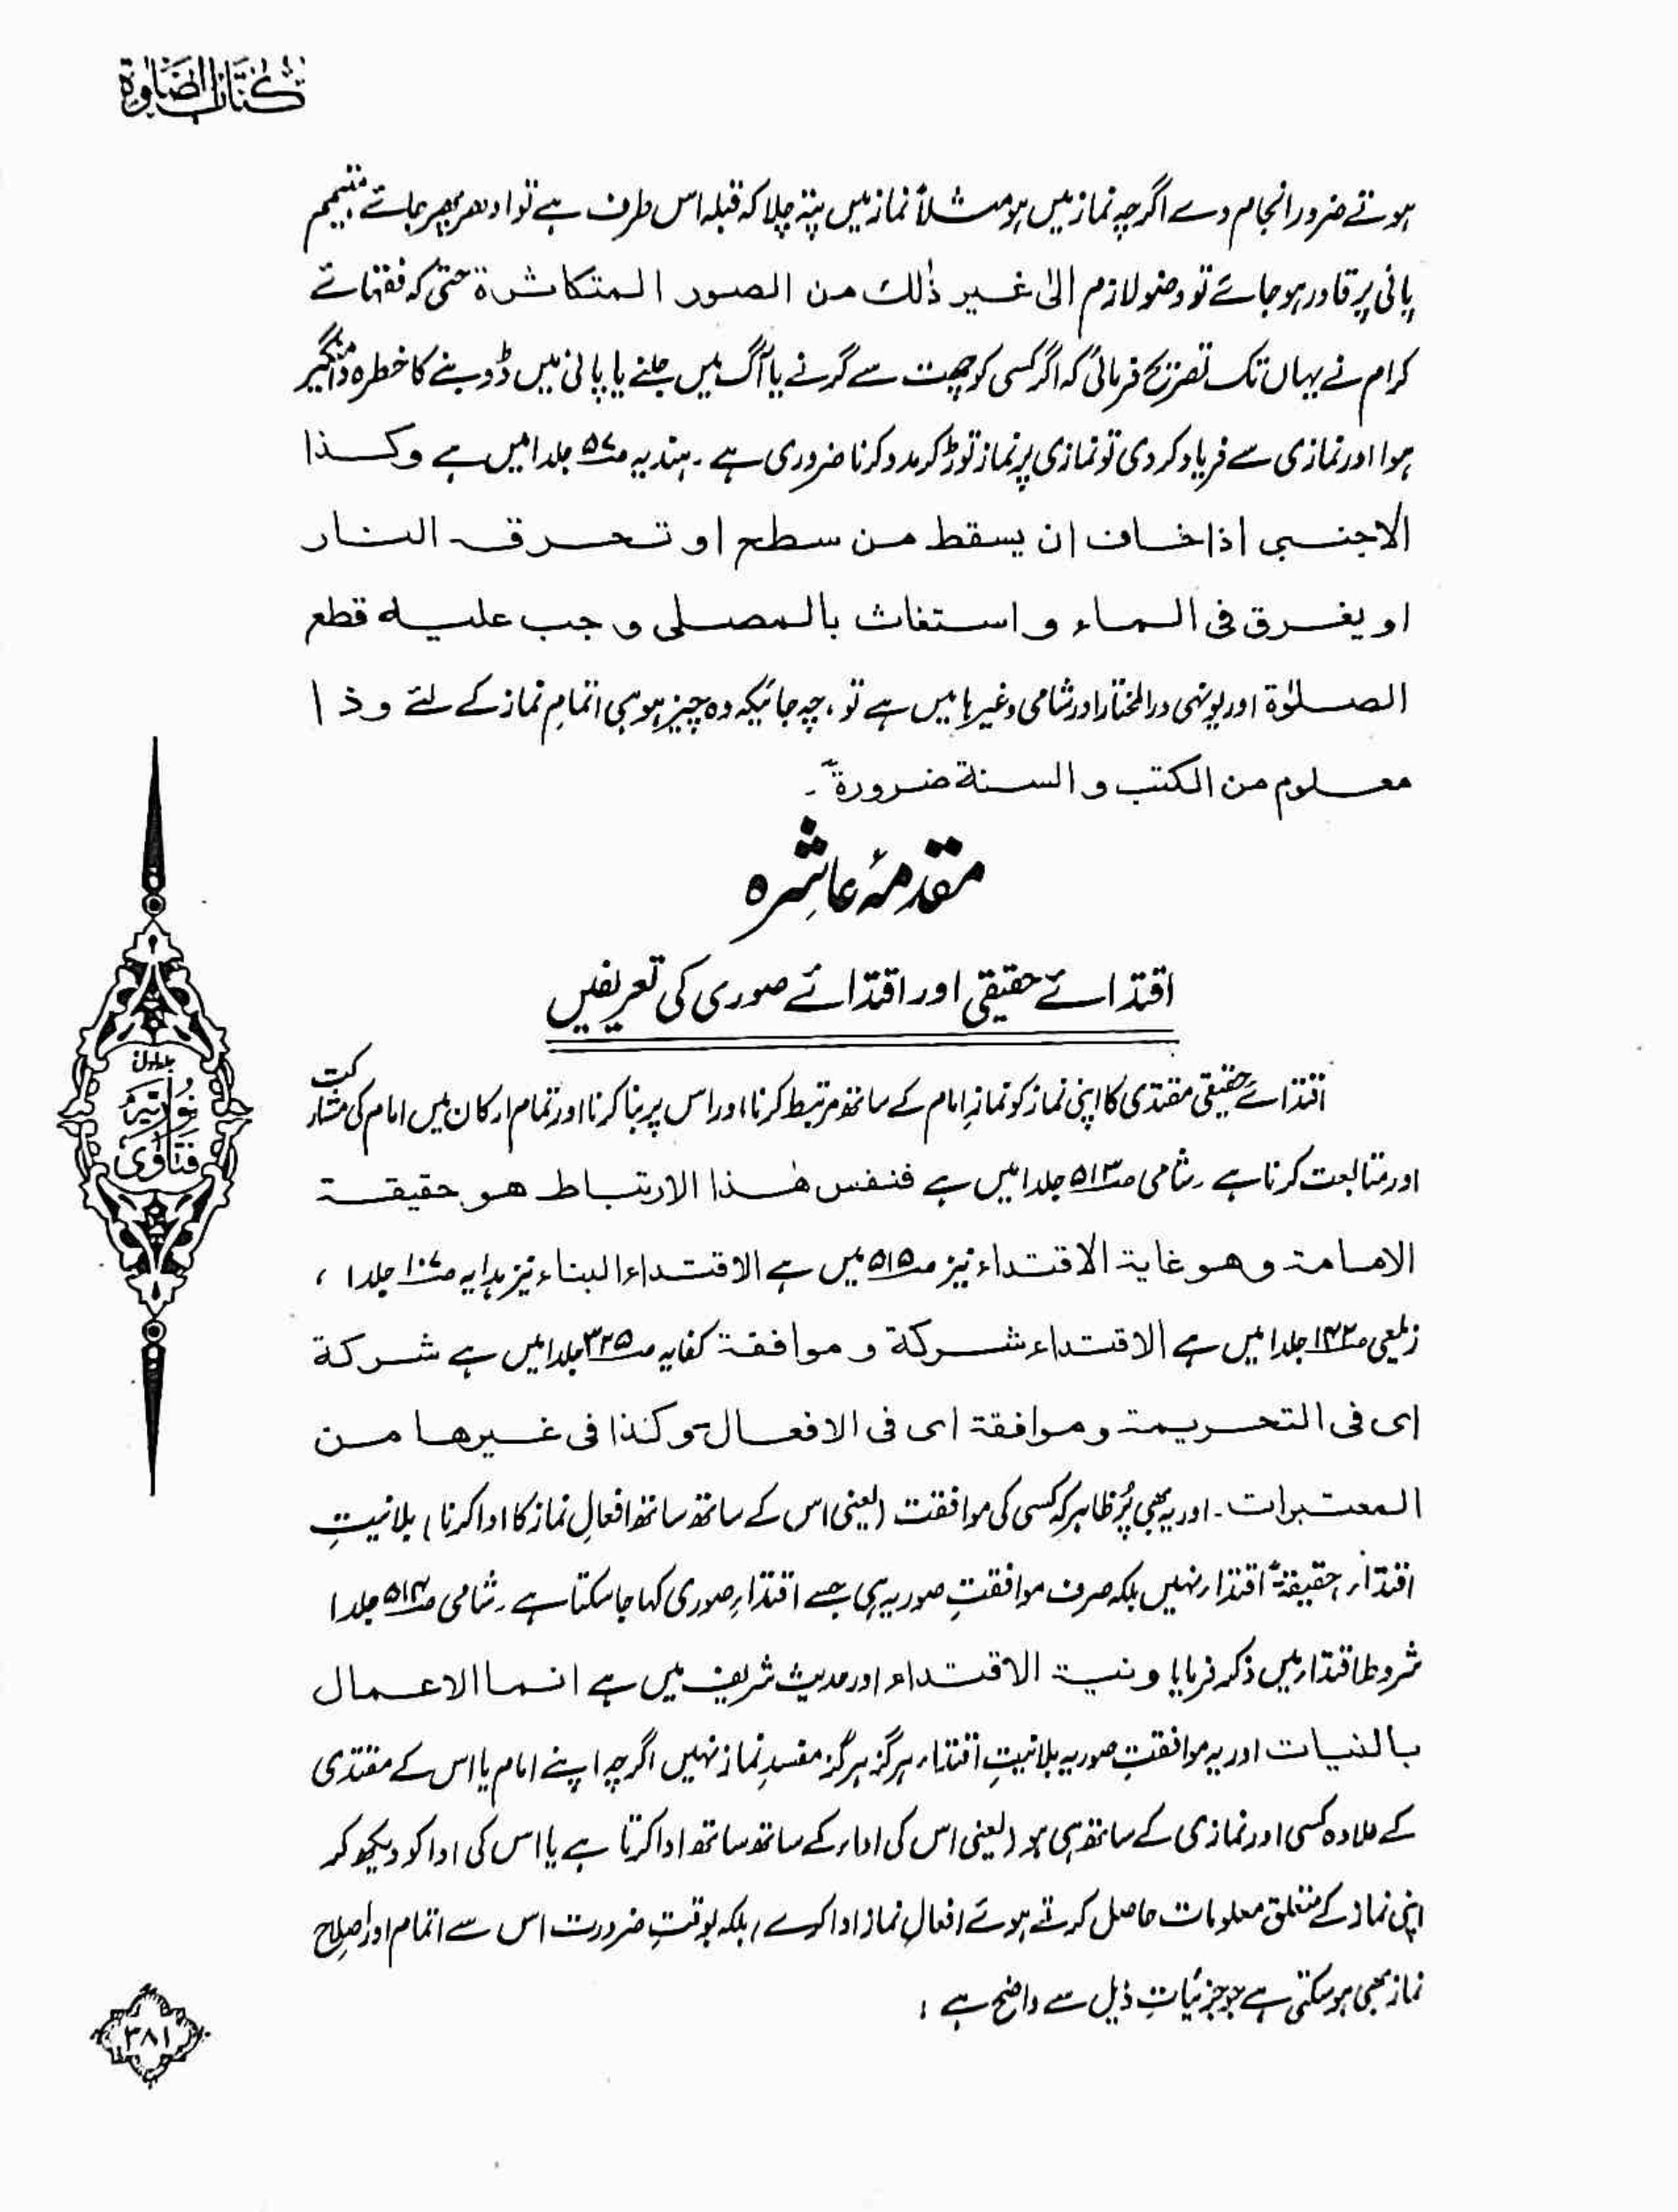 کتاب الصلوٰة
ہوتے ضرور انجام دے اگرچہ نماز میں ہو مثلاً نماز میں پتہ چلا کہ قبلہ اس طرف ہے تو ادھر پھر جائے متیمم
پانی پر قادر ہو جائے تو وضو لازم الیٰ غیر ذٰلک من الصور المتکاثرة حتیٰ کہ فقہائے
کرام نے یہاں تک تصریح فرمائی کہ اگر کسی کو چھت سے گرنے یا آگ میں جلنے یا پانی میں ڈوبنے کا خطرہ دامنگیر
ہوا اور نمازی سے فریاد کر دی تو نمازی پر نماز توڑ کر مدد کرنا ضروری ہے ۔ ہندیہ ص۵۷ جلد ا میں ہے وکذا
الاجنبی اذا خاف ان یسقط من سطح او تحرقہ النار
او یغرق فی الماء و استغاث بالمصلی وجب علیہ قطع
الصلوٰة اور یونہی درالمختار اور شامی وغیرہا میں ہے تو، چہ جائیکہ وہ چیز ہو ہی اتمامِ نماز کے لئے وذا
معلوم من الکتٰب و السنة ضرورةً ۔
مقدمۂ عاشرہ
اقتدائے حقیقی اور اقتدائے صوری کی تعریفیں
اقتدائے حقیقی مقتدی کا اپنی نماز کو نمازِ امام کے ساتھ مرتبط کرنا اور اس پر بنا کرنا اور تمام ارکان میں امام کی مشارکت
اور متابعت کرنا ہے ۔ شامی ص۵۱۳ جلد ا میں ہے فنفس ھٰذا الارتباط ھو حقیقة
الامامة وھو غایة الاقتداء نیز ص۵۱۵ میں ہے الاقتداء البناء نیز ہدایہ ص۱۰۷ جلد ا ،
زیلعی ص۱۴۳ جلد ا میں ہے الاقتداء شرکة و موافقة کفایہ ص۳۲۵ جلد ا میں ہے شرکة
ای فی التحریمة وموافقة ای فی الافعال وکذا فی غیرھا من
المعتبرات ۔ اور یہ بھی پُر ظاہر کہ کسی کی موافقت (یعنی اس کے ساتھ ساتھ افعالِ نماز کا ادا کرنا) بلا نیتِ
اقتداء، حقیقةً اقتداء نہیں بلکہ صرف موافقتِ صوریہ ہی جسے اقتداءِ صوری کہا جا سکتا ہے ۔ شامی ص۵۱۴ جلد ا
شروط اقتداء میں ذکر فرمایا ونیة الاقتداء اور حدیث شریف میں ہے انما الاعمال
بالنیات اور یہ موافقتِ صوریہ بلا نیتِ اقتداء ہرگز ہرگز مفسدِ نماز نہیں اگرچہ اپنے امام یا اس کے مقتدی
کے علاوہ کسی اور نمازی کے ساتھ ہی ہو (یعنی اس کی اداء کے ساتھ ساتھ ادا کرتا ہے یا اس کی ادا کو دیکھ کر
اپنی نماز کے متعلق معلومات حاصل کرتے ہوئے افعالِ نماز ادا کرے) بلکہ بوقتِ ضرورت اس سے اتمام اور اصلاح
نماز بھی ہو سکتی ہے جو جزئیاتِ ذیل سے واضح ہے :
جلد اول
نوریہ
فتاوٰی
۳۸۱